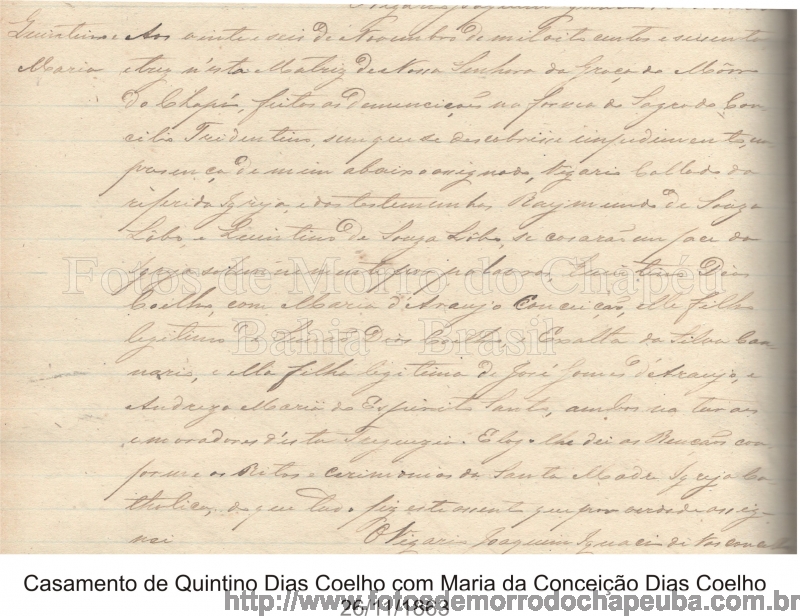 Quintino e
Maria
Aos vinte e seis de Novembro de mil oito centos e sessenta
e trez n'esta Matriz de Nossa Senhora da Graça do Môrro
do Chapéo, feitas as denunciações na forma do Sagrado Con
cilio Tridentino, sem que se descobrisse impedimento, em
presença de mim abaixo assignado, Vigario Collado da
referida Igreja, e das testemunhas Raymundo de Souza
Lôbo, e Quintino de Souza Lôbo, se casarão em face da
Igreja solemnemente por palavras, Quintino Dias
Coelho, com Maria d'Araujo Conceição, elle filho
legitimo de Dias Coelho, e Exalta da Silva Can
naria, e ella filha legitima de José Gomes d'Araujo, e
Andreza Maria do Espirito Santo, ambos naturaes
e moradores d'esta Freguezia. E logo lhe dei as Bençãos con
forme os Ritos e cerimonias da Santa Madre Igreja Ca
tholica, do que tudo fiz este assento que por verdade assig
nei O Vigario Joaquim Ignacio de Vasconcellos
Fotos de Morro do Chapéu
Bahia - Brasil
Casamento de Quintino Dias Coelho com Maria da Conceição Dias Coelho
26/11/1863
http://www.fotosdemorrodochapeuba.com.br